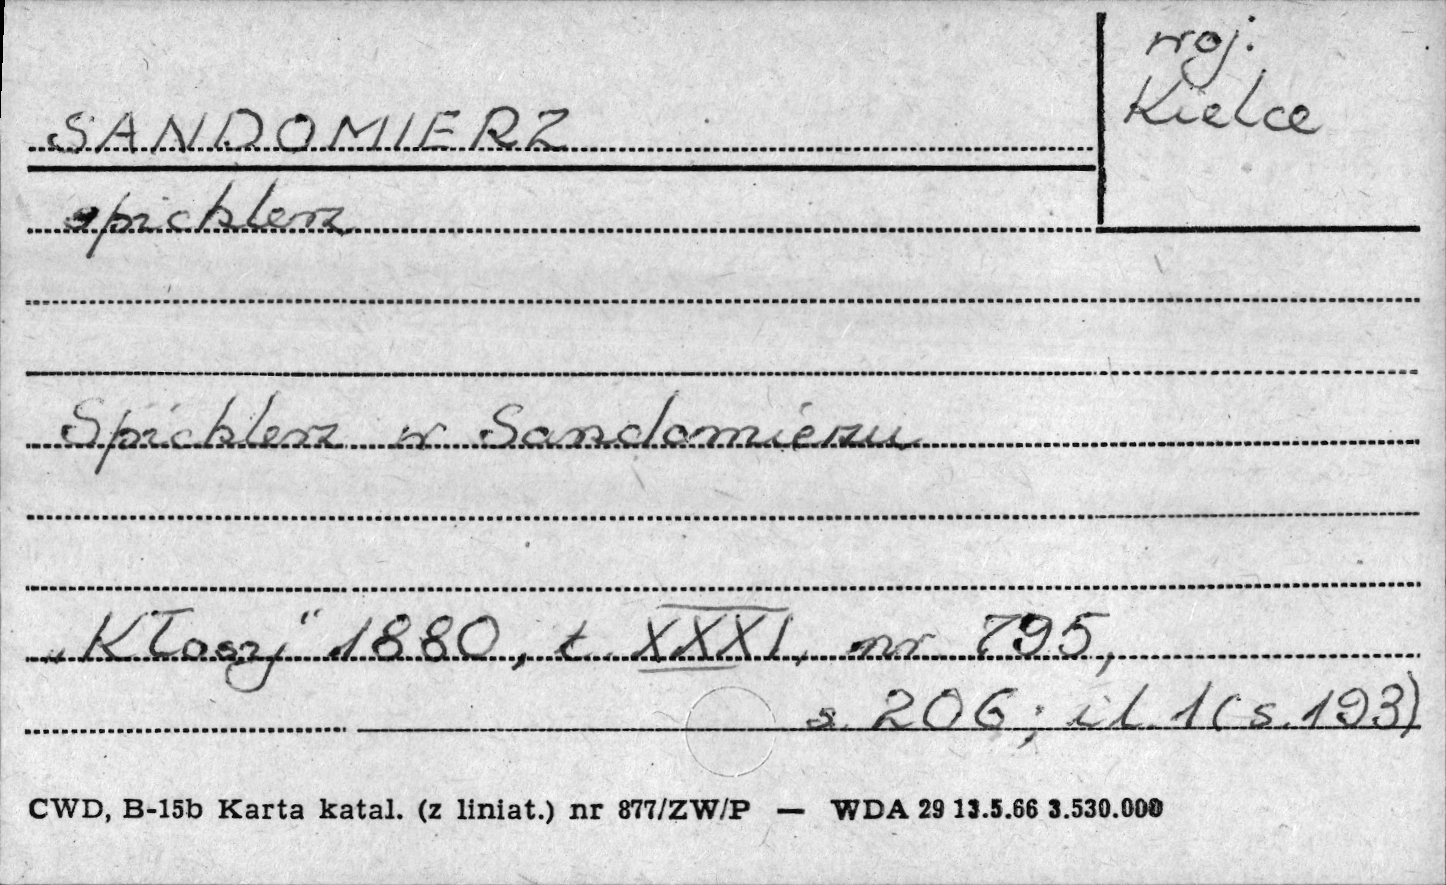 woj.
Kielce
SANDOMIERZ
spichlerz
Spichlerz w Sandomierzu
„Kłosy" 1880, t. XXXI, nr 795,
s. 206; il. 1 (s. 193)
CWD, B-15b Karta katal. (z liniat.) nr 877/ZW/P — WDA 29 13.5.66 3.530.000